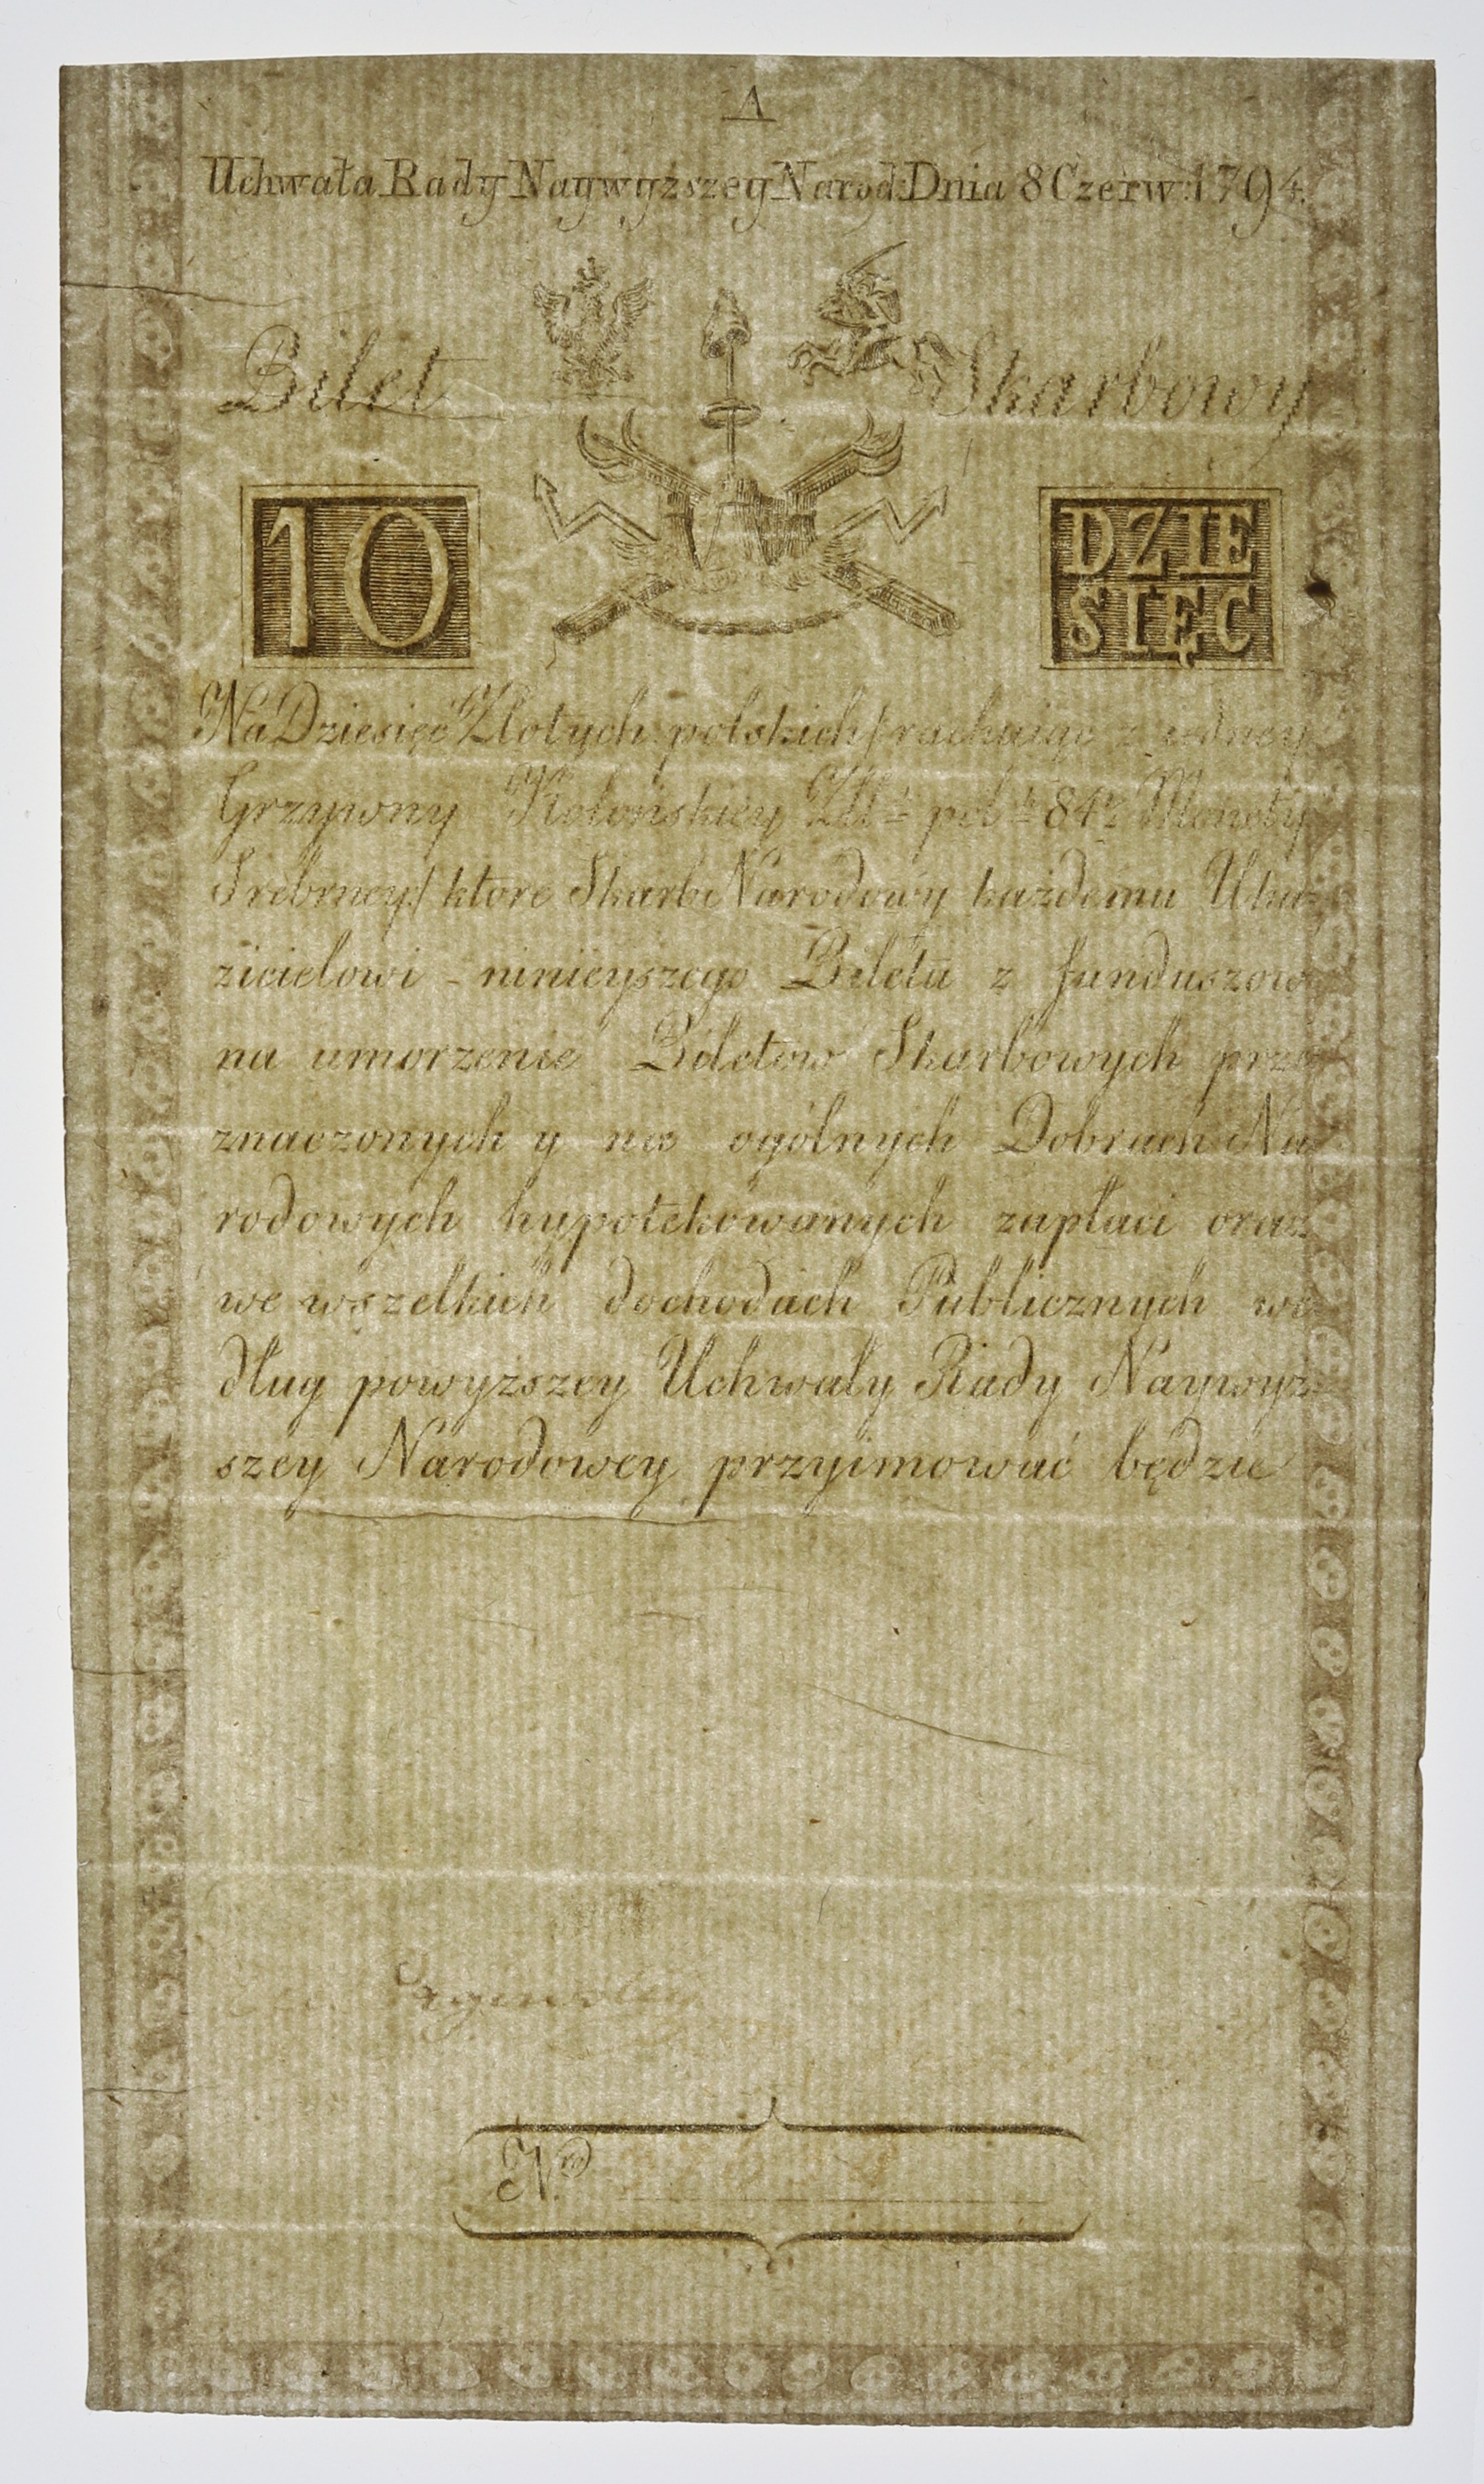 A
Uchwała Rady Naywyższey Narod: Dnia 8 Czerw: 1794.
Bilet Skarbowy
10 DZIE
SIĘC
Na Dziesięć Złotych polskich / rachuiąc z iedney
Grzywny Kolońskiey Zł. pol. 84. Monety
Srebrney / które Skarb Narodowy każdemu Uka-
zicielowi ninieyszego Biletu z funduszow
na umorzenie Biletow Skarbowych prze-
znaczonych y na ogólnych Dobrach Na
rodowych hypotekowanych zapłaci oraz
we wszelkich dochodach Publicznych we-
dług powyższey Uchwały Rady Naywyż-
szey Narodowey przyimować będzie
Nro